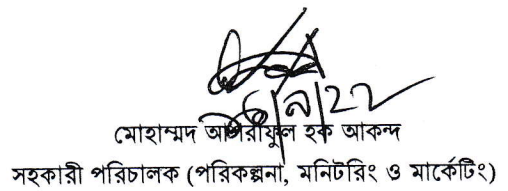 মোহাম্মদ আশরীফুল হক আকন্দ
সহকারী পরিচালক (পরিকল্পনা, মনিটরিং ও মার্কেটিং)